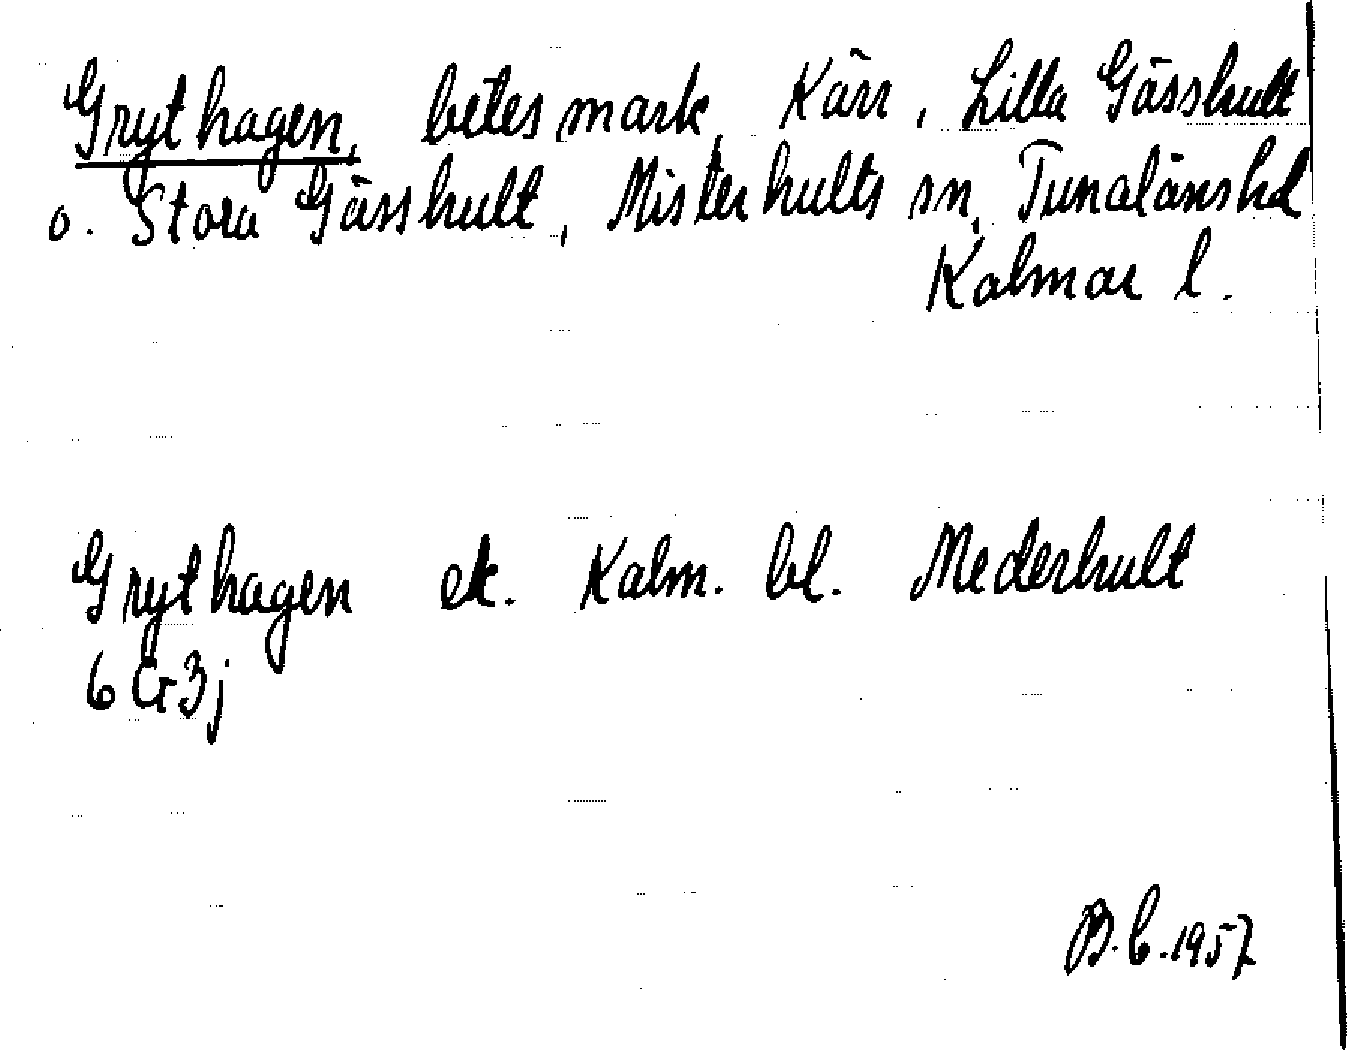 Grythagen, betesmark, Kärr, Lilla Gässhult
o. Stora Gässhult, Misterhults sn, Tunaläns hd
Kalmar l.
Grythagen ek. Kalm. bl. Mederhult
6 G 3j
B.b. 1957